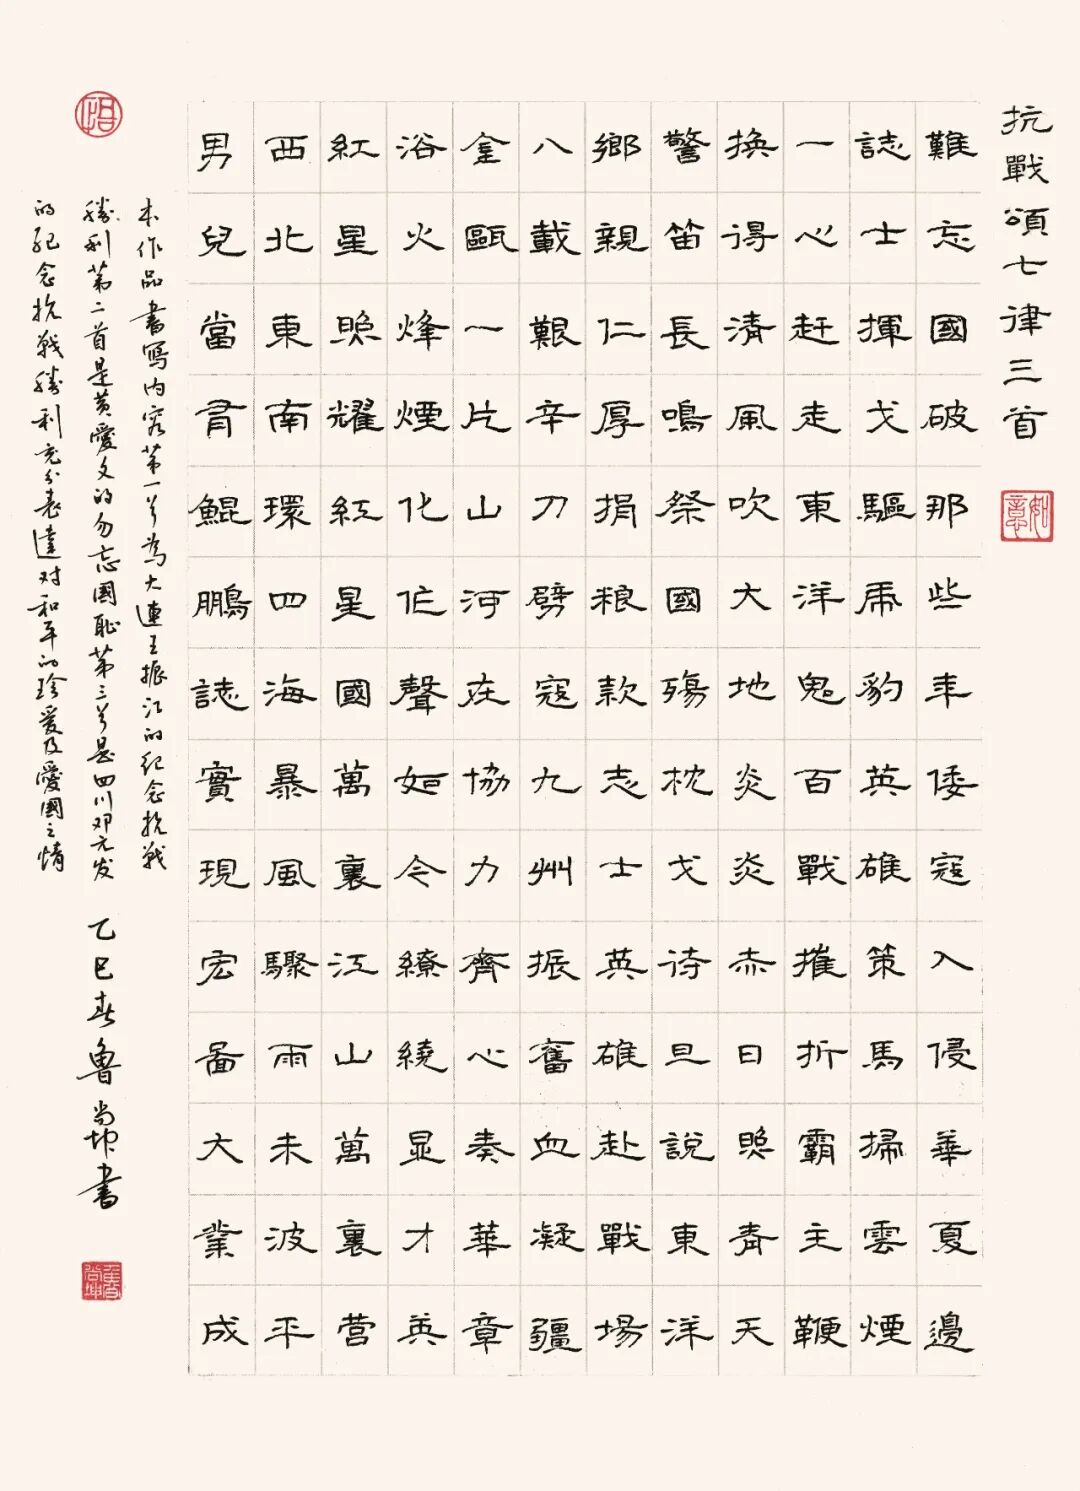 抗戰頌七律三首
如意
難忘國破那些年倭寇入侵華夏邊
誌士揮戈驅虎豹英雄策馬掃雲煙
一心赶走東洋鬼百戰摧折霸主鞭
換得清風吹大地炎炎赤日照青天
警笛長鳴祭國殤枕戈待旦說東洋
鄉親仁厚捐粮款志士英雄赴戰場
八載艱辛刀劈寇九州振奮血凝疆
金甌一片山河在協力齊心奏華章
浴火烽煙化作聲如今繚繞显才英
紅星照耀紅星國萬裏江山萬裏營
西北東南環四海暴風驟雨未波平
男兒當有鯤鵬誌實現宏圖大業成
本作品書寫内容第一首為大連王振江的纪念抗战
勝利第二首是黄愛文的勿忘國恥第三首是四川邓元发
的纪念抗战勝利充分表達对和平的珍爱及愛國之情
乙巳春魯尚坤書